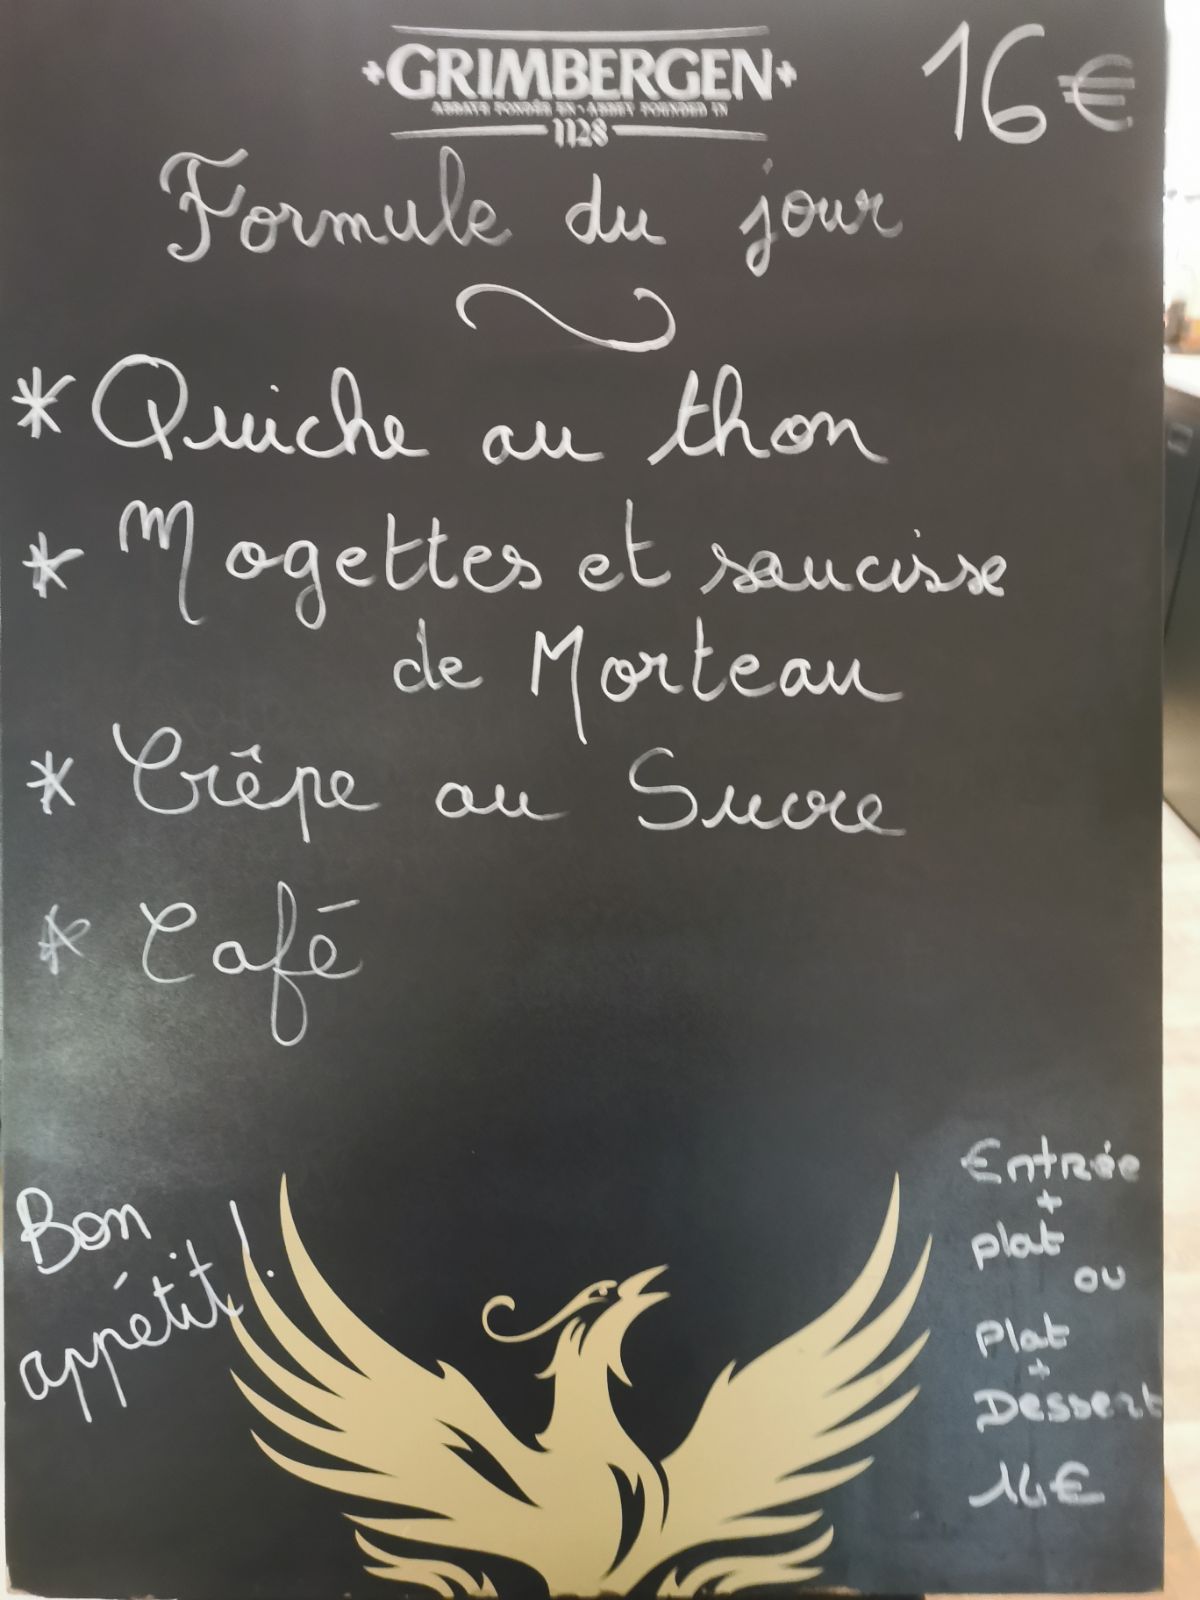 GRIMBERGEN
ABBAYE FONDÉE EN · ABBEY FOUNDED IN
1128
16€
Formule du jour
* Quiche au thon
* Mogettes et saucisse
de Morteau
* Crêpe au Sucre
* Café
Bon
appétit !
Entrée
+
plat
ou
Plat
+
Dessert
14€